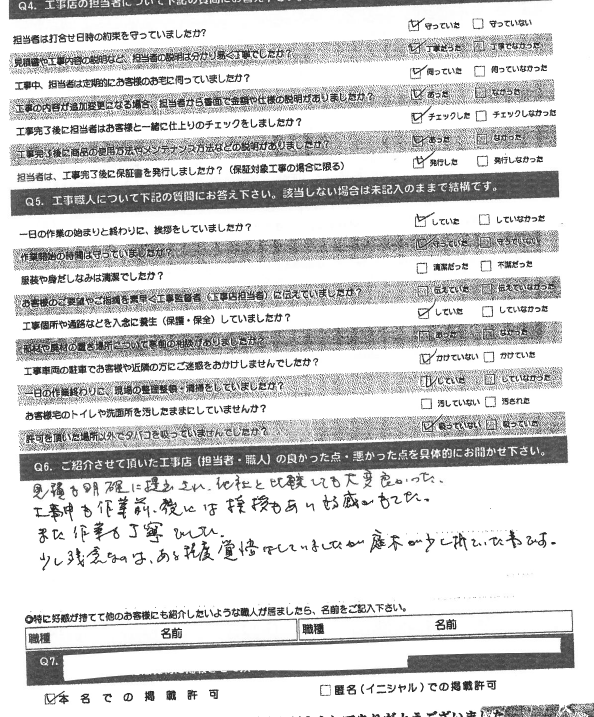 Q4. 工事店の担当者について下記の質問にお答え下さい。
担当者は打合せ日時の約束を守っていましたか? ☑ 守っていた □ 守っていない
見積書や工事内容の説明など、担当者の説明は分かり易く丁寧でしたか? ☑ 丁寧だった □ 丁寧でなかった
工事中、担当者は定期的にお客様のお宅に伺っていましたか? ☑ 伺っていた □ 伺っていなかった
工事の内容が追加変更になる場合、担当者から書面で金額や仕様の説明がありましたか? ☑ あった □ なかった
工事完了後に担当者はお客様と一緒に仕上りのチェックをしましたか? ☑ チェックした □ チェックしなかった
工事完了後に商品の使用方法やメンテナンス方法などの説明がありましたか? ☑ あった □ なかった
担当者は、工事完了後に保証書を発行しましたか?(保証対象工事の場合に限る) ☑ 発行した □ 発行しなかった
Q5. 工事職人について下記の質問にお答え下さい。該当しない場合は未記入のままで結構です。
一日の作業の始まりと終わりに、挨拶をしていましたか? ☑ していた □ していなかった
作業開始の時間は守っていましたか? ☑ 守っていた □ 守っていない
服装や身だしなみは清潔でしたか? □ 清潔だった □ 不潔だった
お客様のご要望やご指摘を素早く工事監督者(工事店担当者)に伝えていましたか? □ 伝えていた □ 伝えていなかった
工事個所や通路などを入念に養生(保護・保全)していましたか? ☑ していた □ していなかった
部材や資材の置き場所について事前の相談がありましたか? □ あった □ なかった
工事車両の駐車でお客様や近隣の方にご迷惑をおかけしませんでしたか? ☑ かけていない □ かけていた
一日の作業終わりに、現場の整理整頓・清掃をしていましたか? ☑ していた □ していなかった
お客様宅のトイレや洗面所を汚したままにしていませんか? □ 汚していない □ 汚された
許可を頂いた場所以外でタバコを吸っていませんでしたか? ☑ 吸っていない □ 吸っていた
Q6. ご紹介させて頂いた工事店(担当者・職人)の良かった点・悪かった点を具体的にお聞かせ下さい。
見積も明確に提出され、他社と比較しても大変良かった。
工事中も作業前、後には挨拶もあり好感がもてた。
また作業も丁寧でした。
少し残念なのは、ある程度覚悟はしていましたが庭木が少し折れていた事です。
◎特に好感が持てて他のお客様にも紹介したいような職人が居ましたら、名前をご記入下さい。
職種 名前 職種 名前
Q7.
☑本名での掲載許可 □匿名(イニシャル)での掲載許可
ありがとうございました